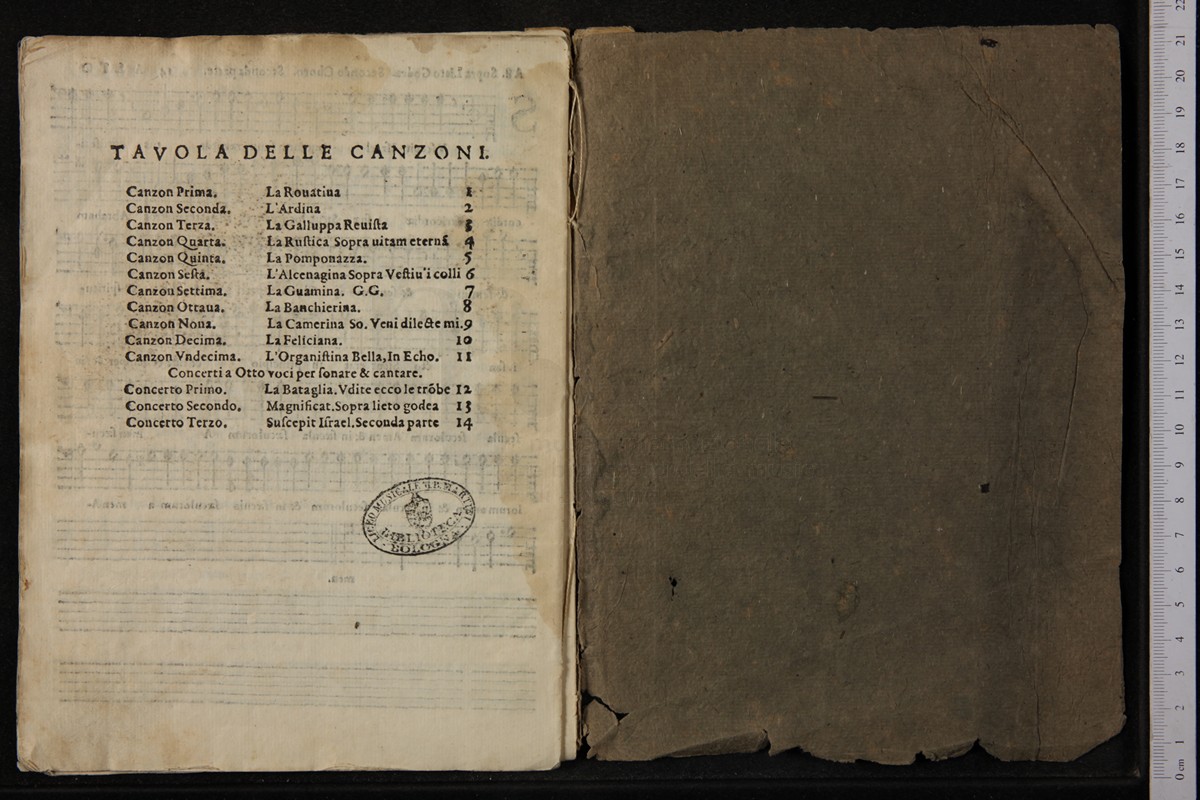 TAVOLA DELLE CANZONI.
Canzon Prima. La Rouatina 1
Canzon Seconda. L'Ardina 2
Canzon Terza. La Galluppa Reuiſta 3
Canzon Quarta. La Ruſtica Sopra uitam eternã 4
Canzon Quinta. La Pomponazza. 5
Canzon Seſta. L'Alcenagina Sopra Veſtiu'i colli 6
Canzon Settima. La Guamina. G.G. 7
Canzon Ottaua. La Banchierina. 8
Canzon Nona. La Camerina So. Veni dilecte mi. 9
Canzon Decima. La Feliciana. 10
Canzon Vndecima. L'Organiſtina Bella, In Echo. 11
Concerti a Otto voci per ſonare & cantare.
Concerto Primo. La Bataglia. Vdite ecco le trõbe 12
Concerto Secondo. Magnificat. Sopra lieto godea 13
Concerto Terzo. Suſcepit Iſrael. Seconda parte 14
LICEO MUSICALE M.B. MARTINI
BIBLIOTECA
BOLOGNA
0 cm 1 2 3 4 5 6 7 8 9 10 11 12 13 14 15 16 17 18 19 20 21 22